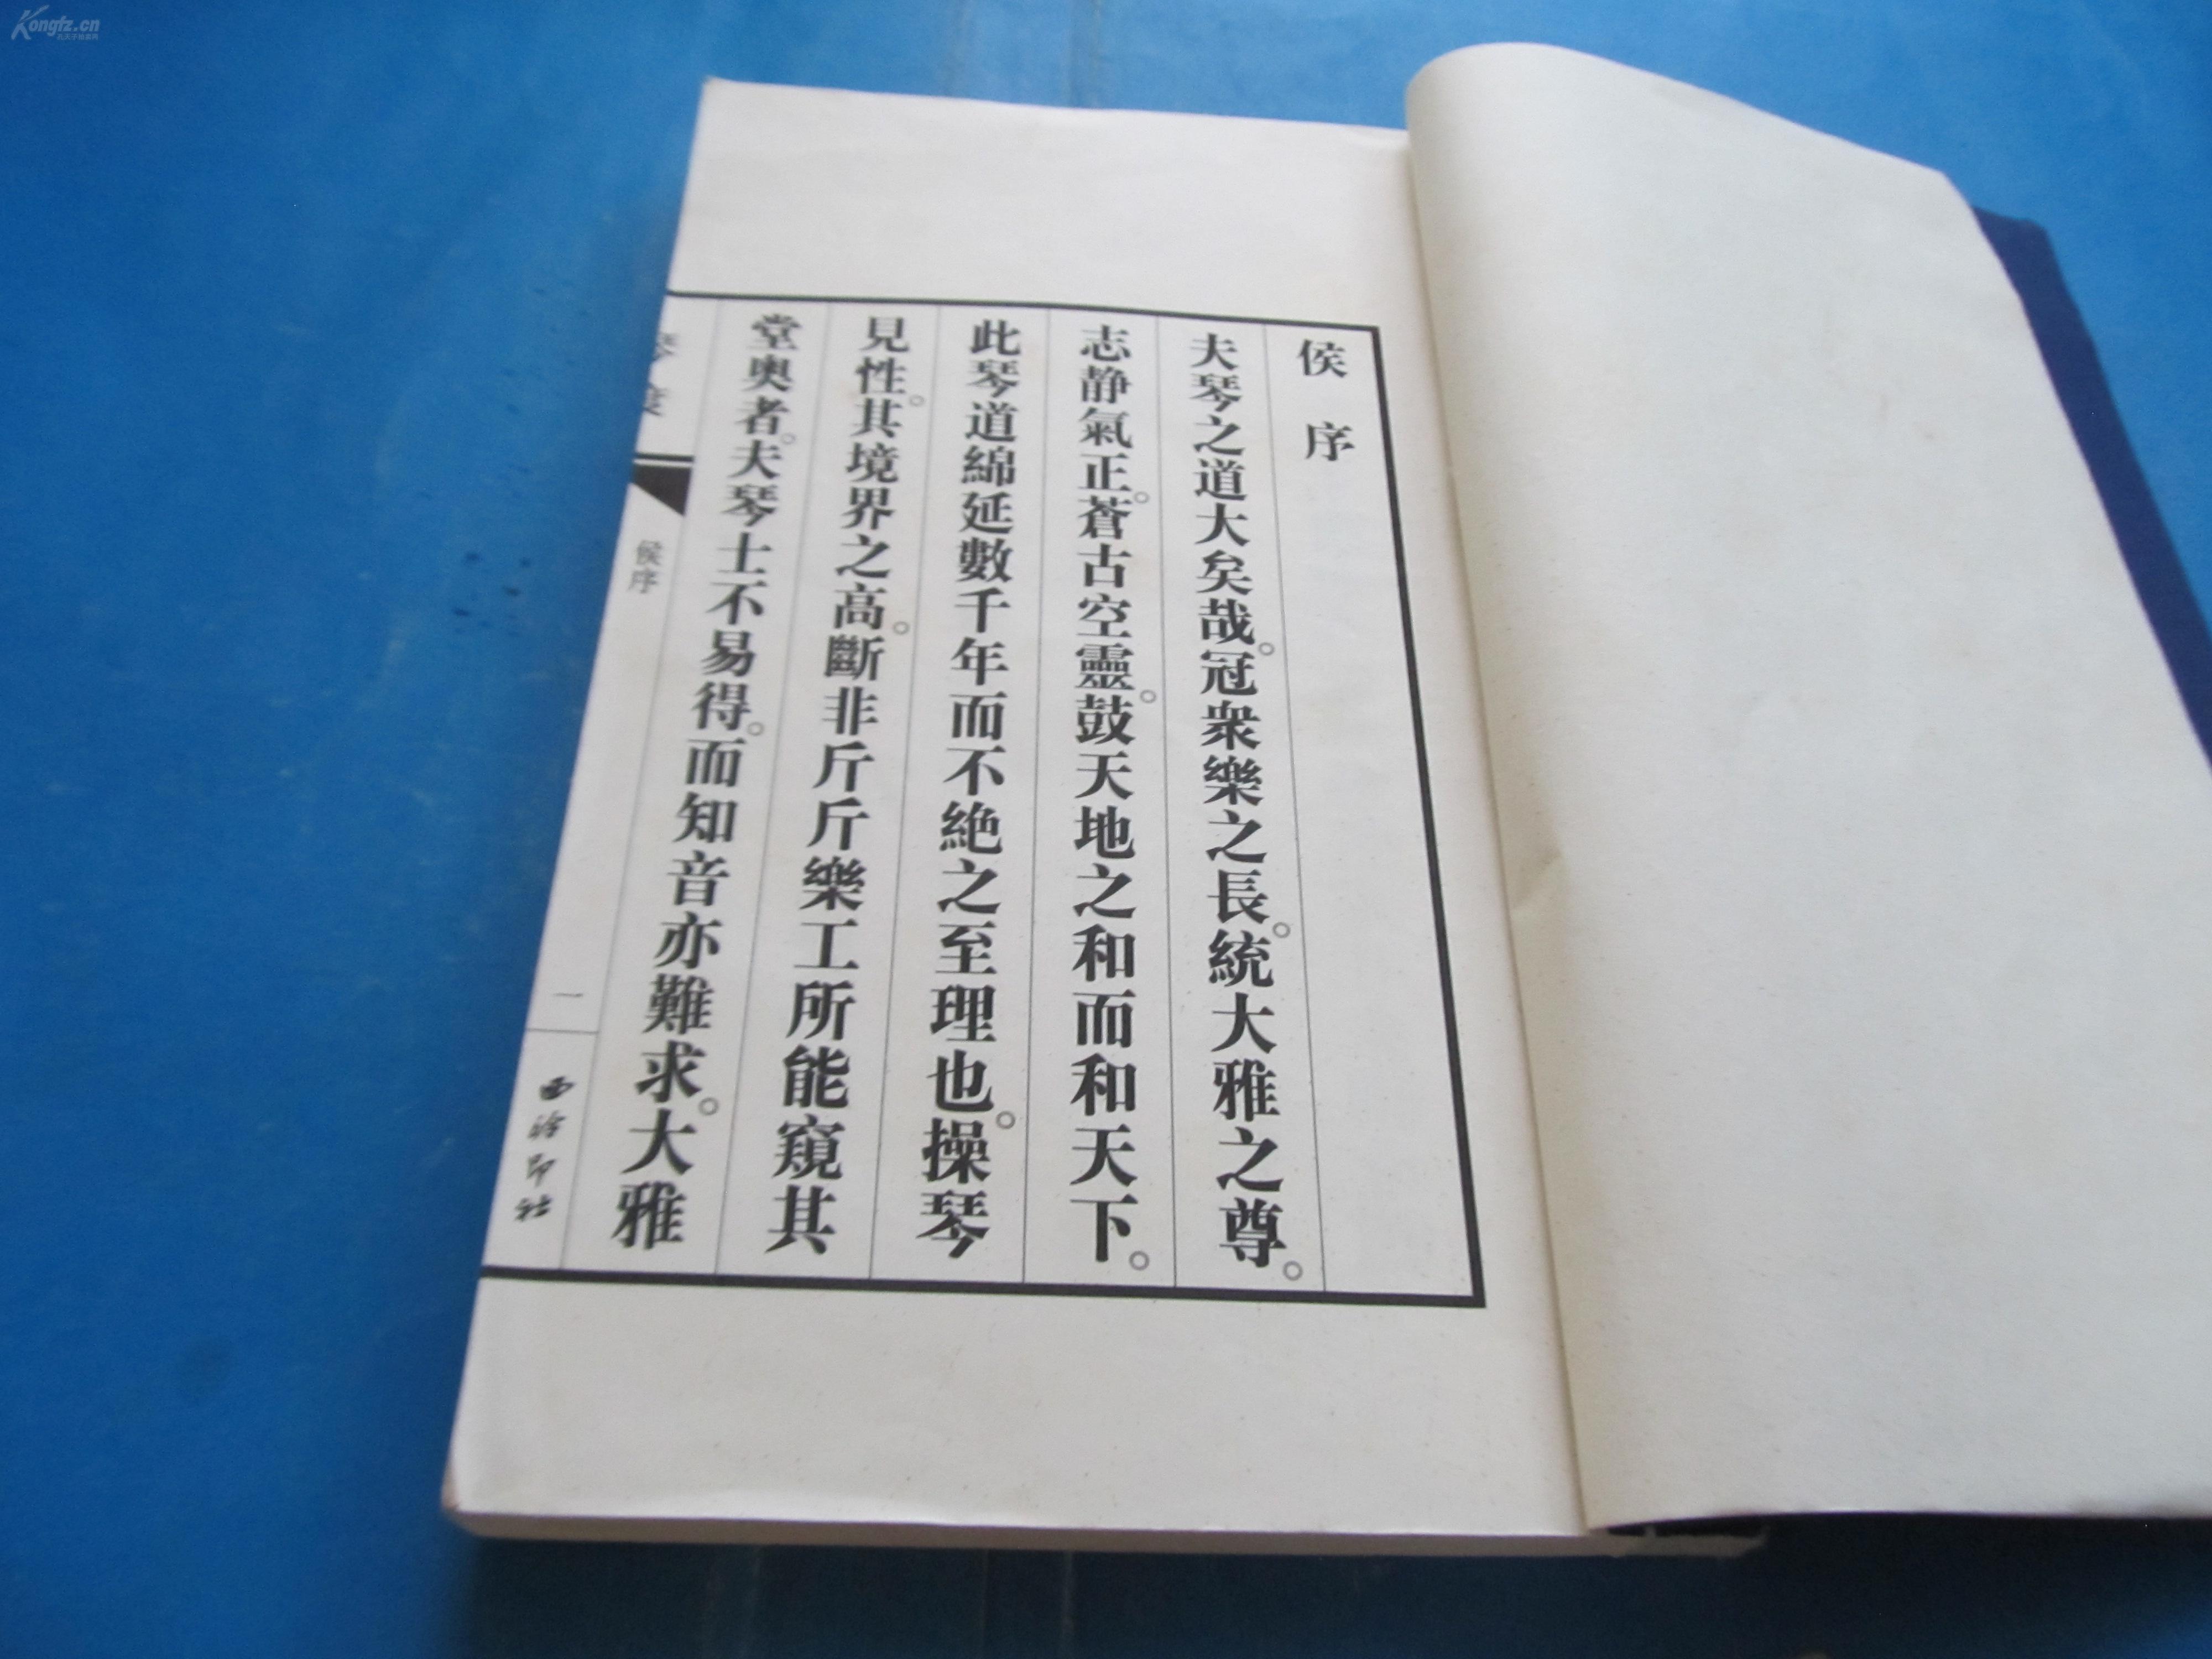 侯序
夫琴之道大矣哉。冠衆樂之長。統大雅之尊。
志静氣正。蒼古空靈。鼓天地之和而和天下。
此琴道綿延數千年而不絶之至理也。操琴
見性。其境界之高。斷非斤斤樂工所能窺其
堂奥者。夫琴士不易得。而知音亦難求。大雅
侯序
一
西泠印社
Kongfz.cn